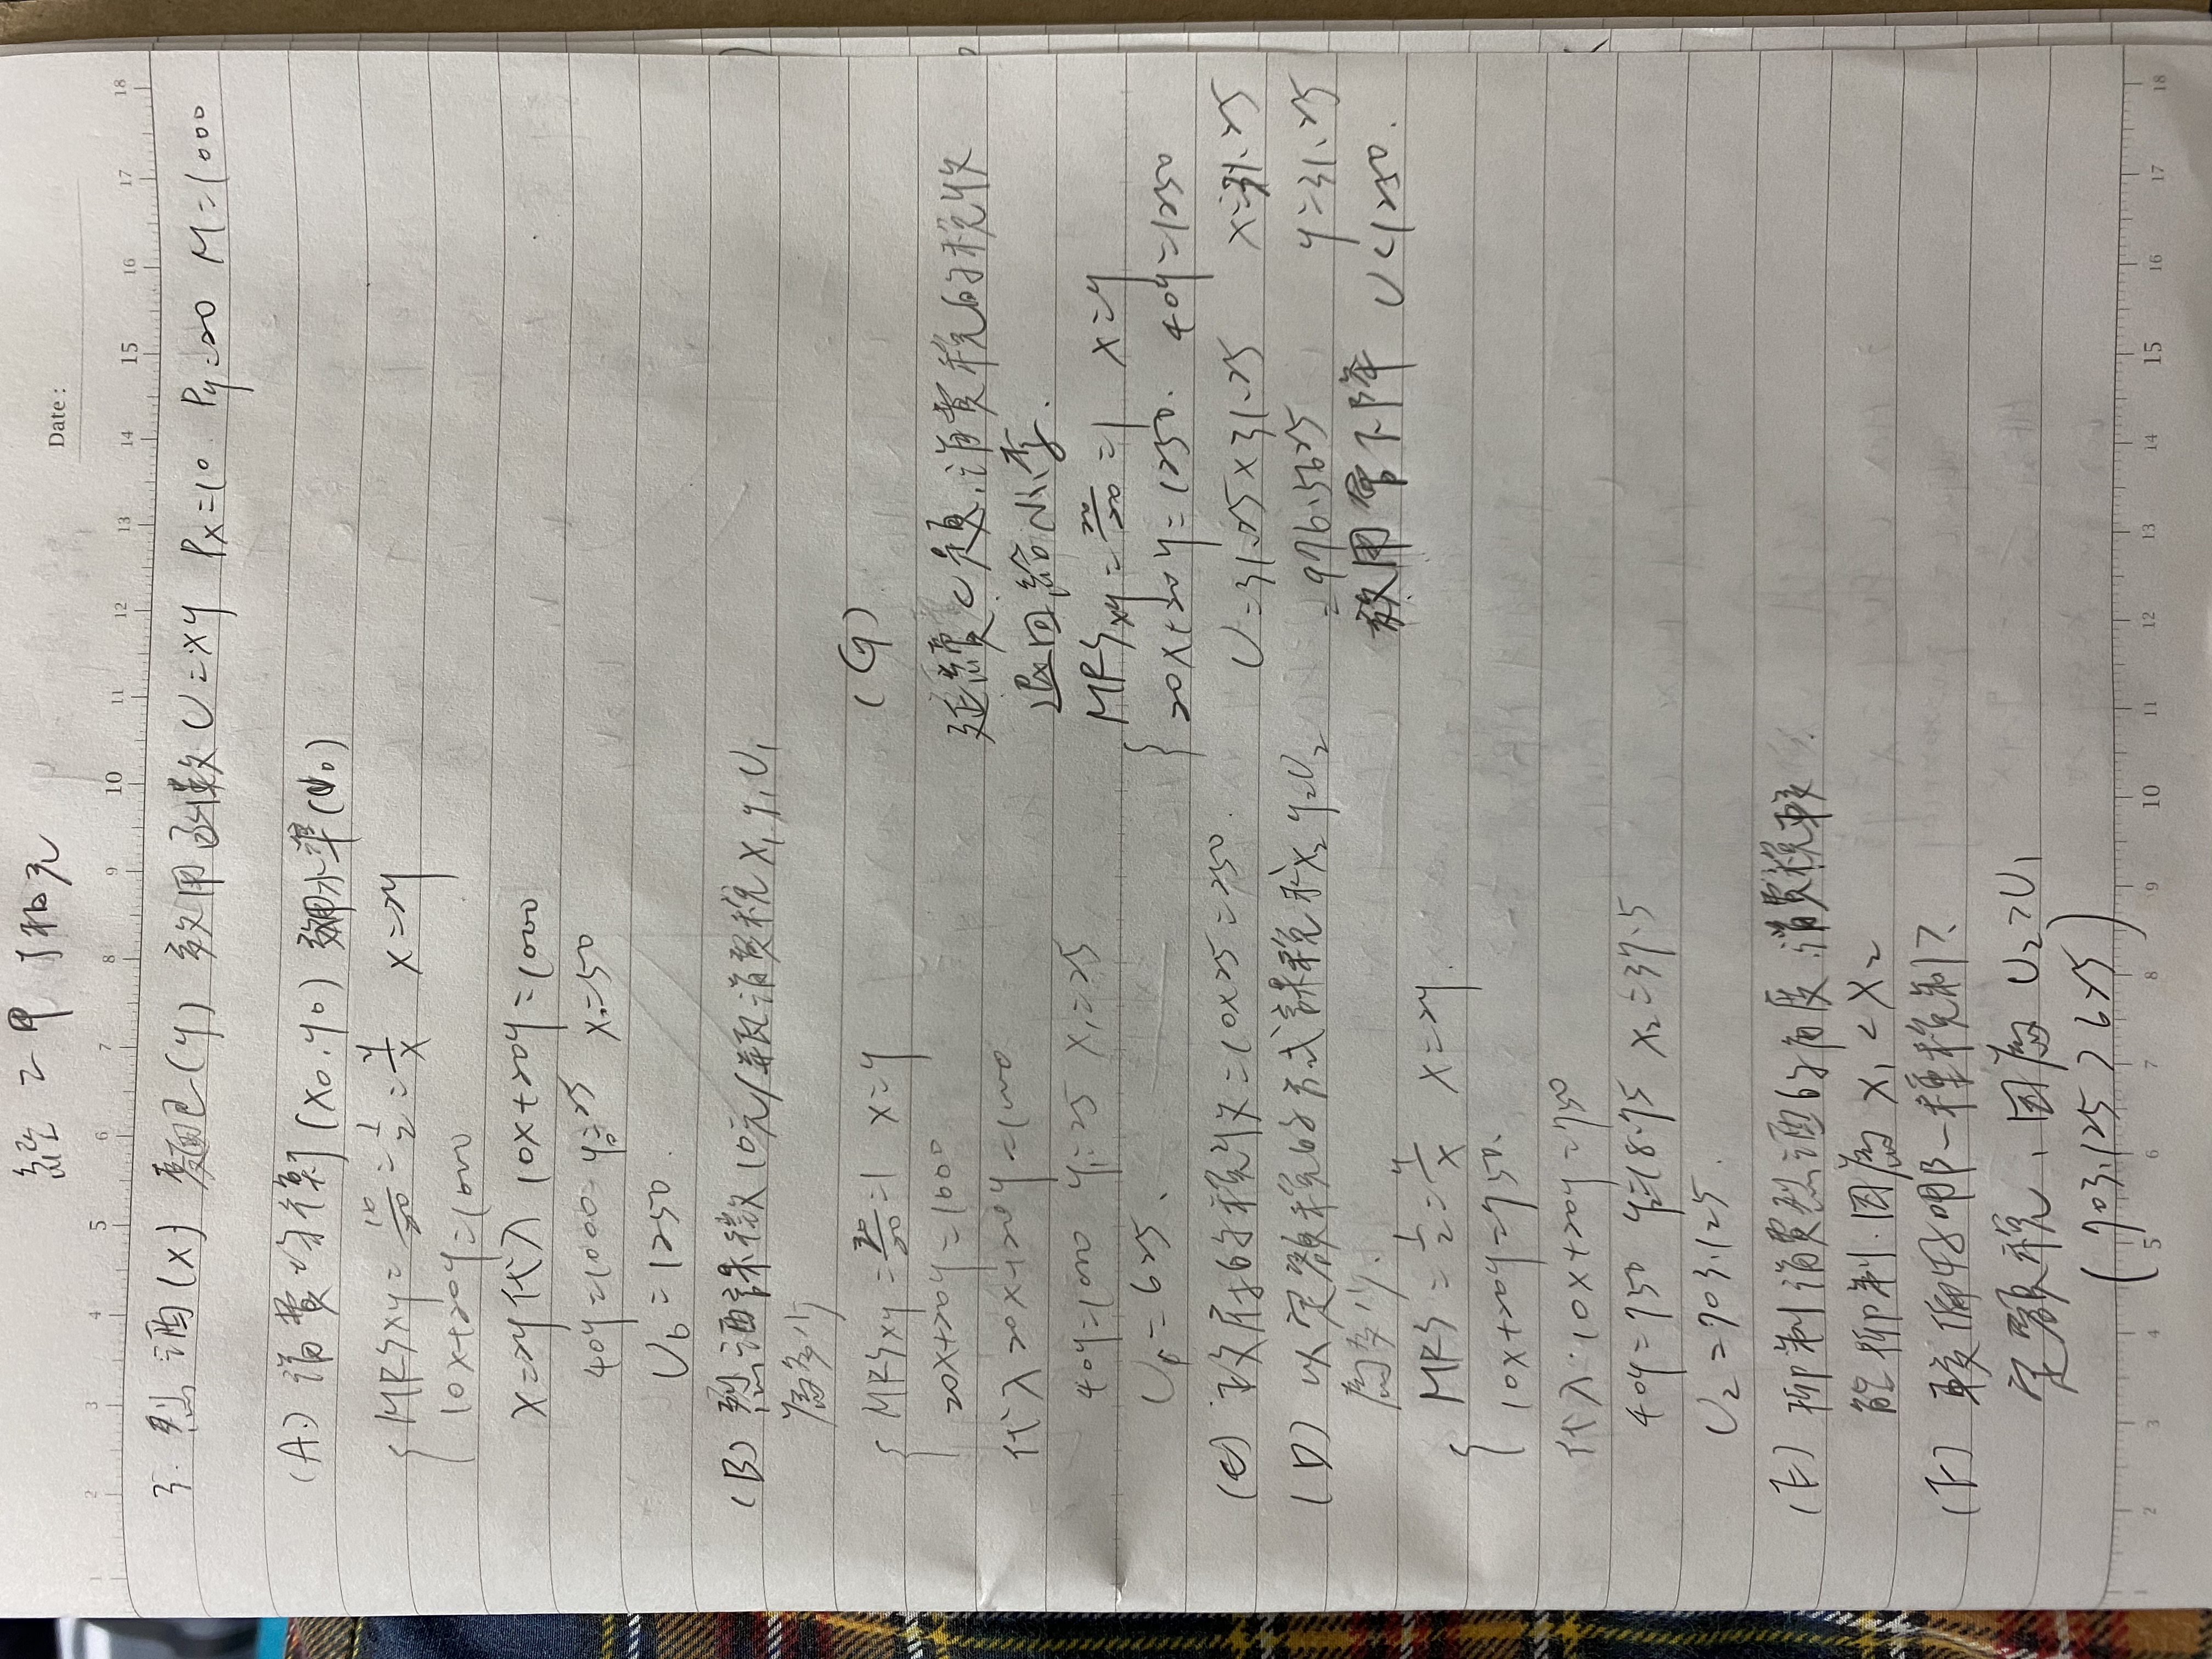 經二甲 丁柏元
Date :
1 2 3 4 5 6 7 8 9 10 11 12 13 14 15 16 17 18
3. 烈酒(x) 麵包(y) 效用函數 U=xy Px=10 Py=20 M=1000
(A.) 消費均衡(x0,y0) 效用水準(U0)
MRSxy=10/20=1/2=y/x x=2y
10x+20y=1000
x=2y代入 10x+20y=1000
40y=1000 y0=25 x0=50
U0=1250.
(B) 烈酒課徵10元/瓶消費稅 x1 y1 U1
為多少
MRSxy=20/20=1 x=y
20x+20y=1000
代入20x+20y=1000
40y=1000 y1=25 x1=25
U1=625.
(C) 政府的稅收=10x25=250.
(D) 以定額稅的方式課稅 求x2 y2 U2
為多少.
MRS=1/2=y/x x=2y.
10x+20y=750.
代入.10x+20y=750
40y=750 y2=18.75 x2=37.5
U2=703.125.
(E) 抑制消費烈酒的角度.消費稅較
能抑制.因為 x1<x2
(F) 較偏好哪一種稅制?
定額稅,因為 U2>U1
(703.125>625)
(G)
延續C題.消費稅的稅收
退回給小李.
MRSxy=20/20=1 x=y
20x+20y=1250. 40y=1250
U=31.25×31.25 x=31.25
=976.5625 y=31.25
效用會下降 U<1250.
1 2 3 4 5 6 7 8 9 10 11 12 13 14 15 16 17 18